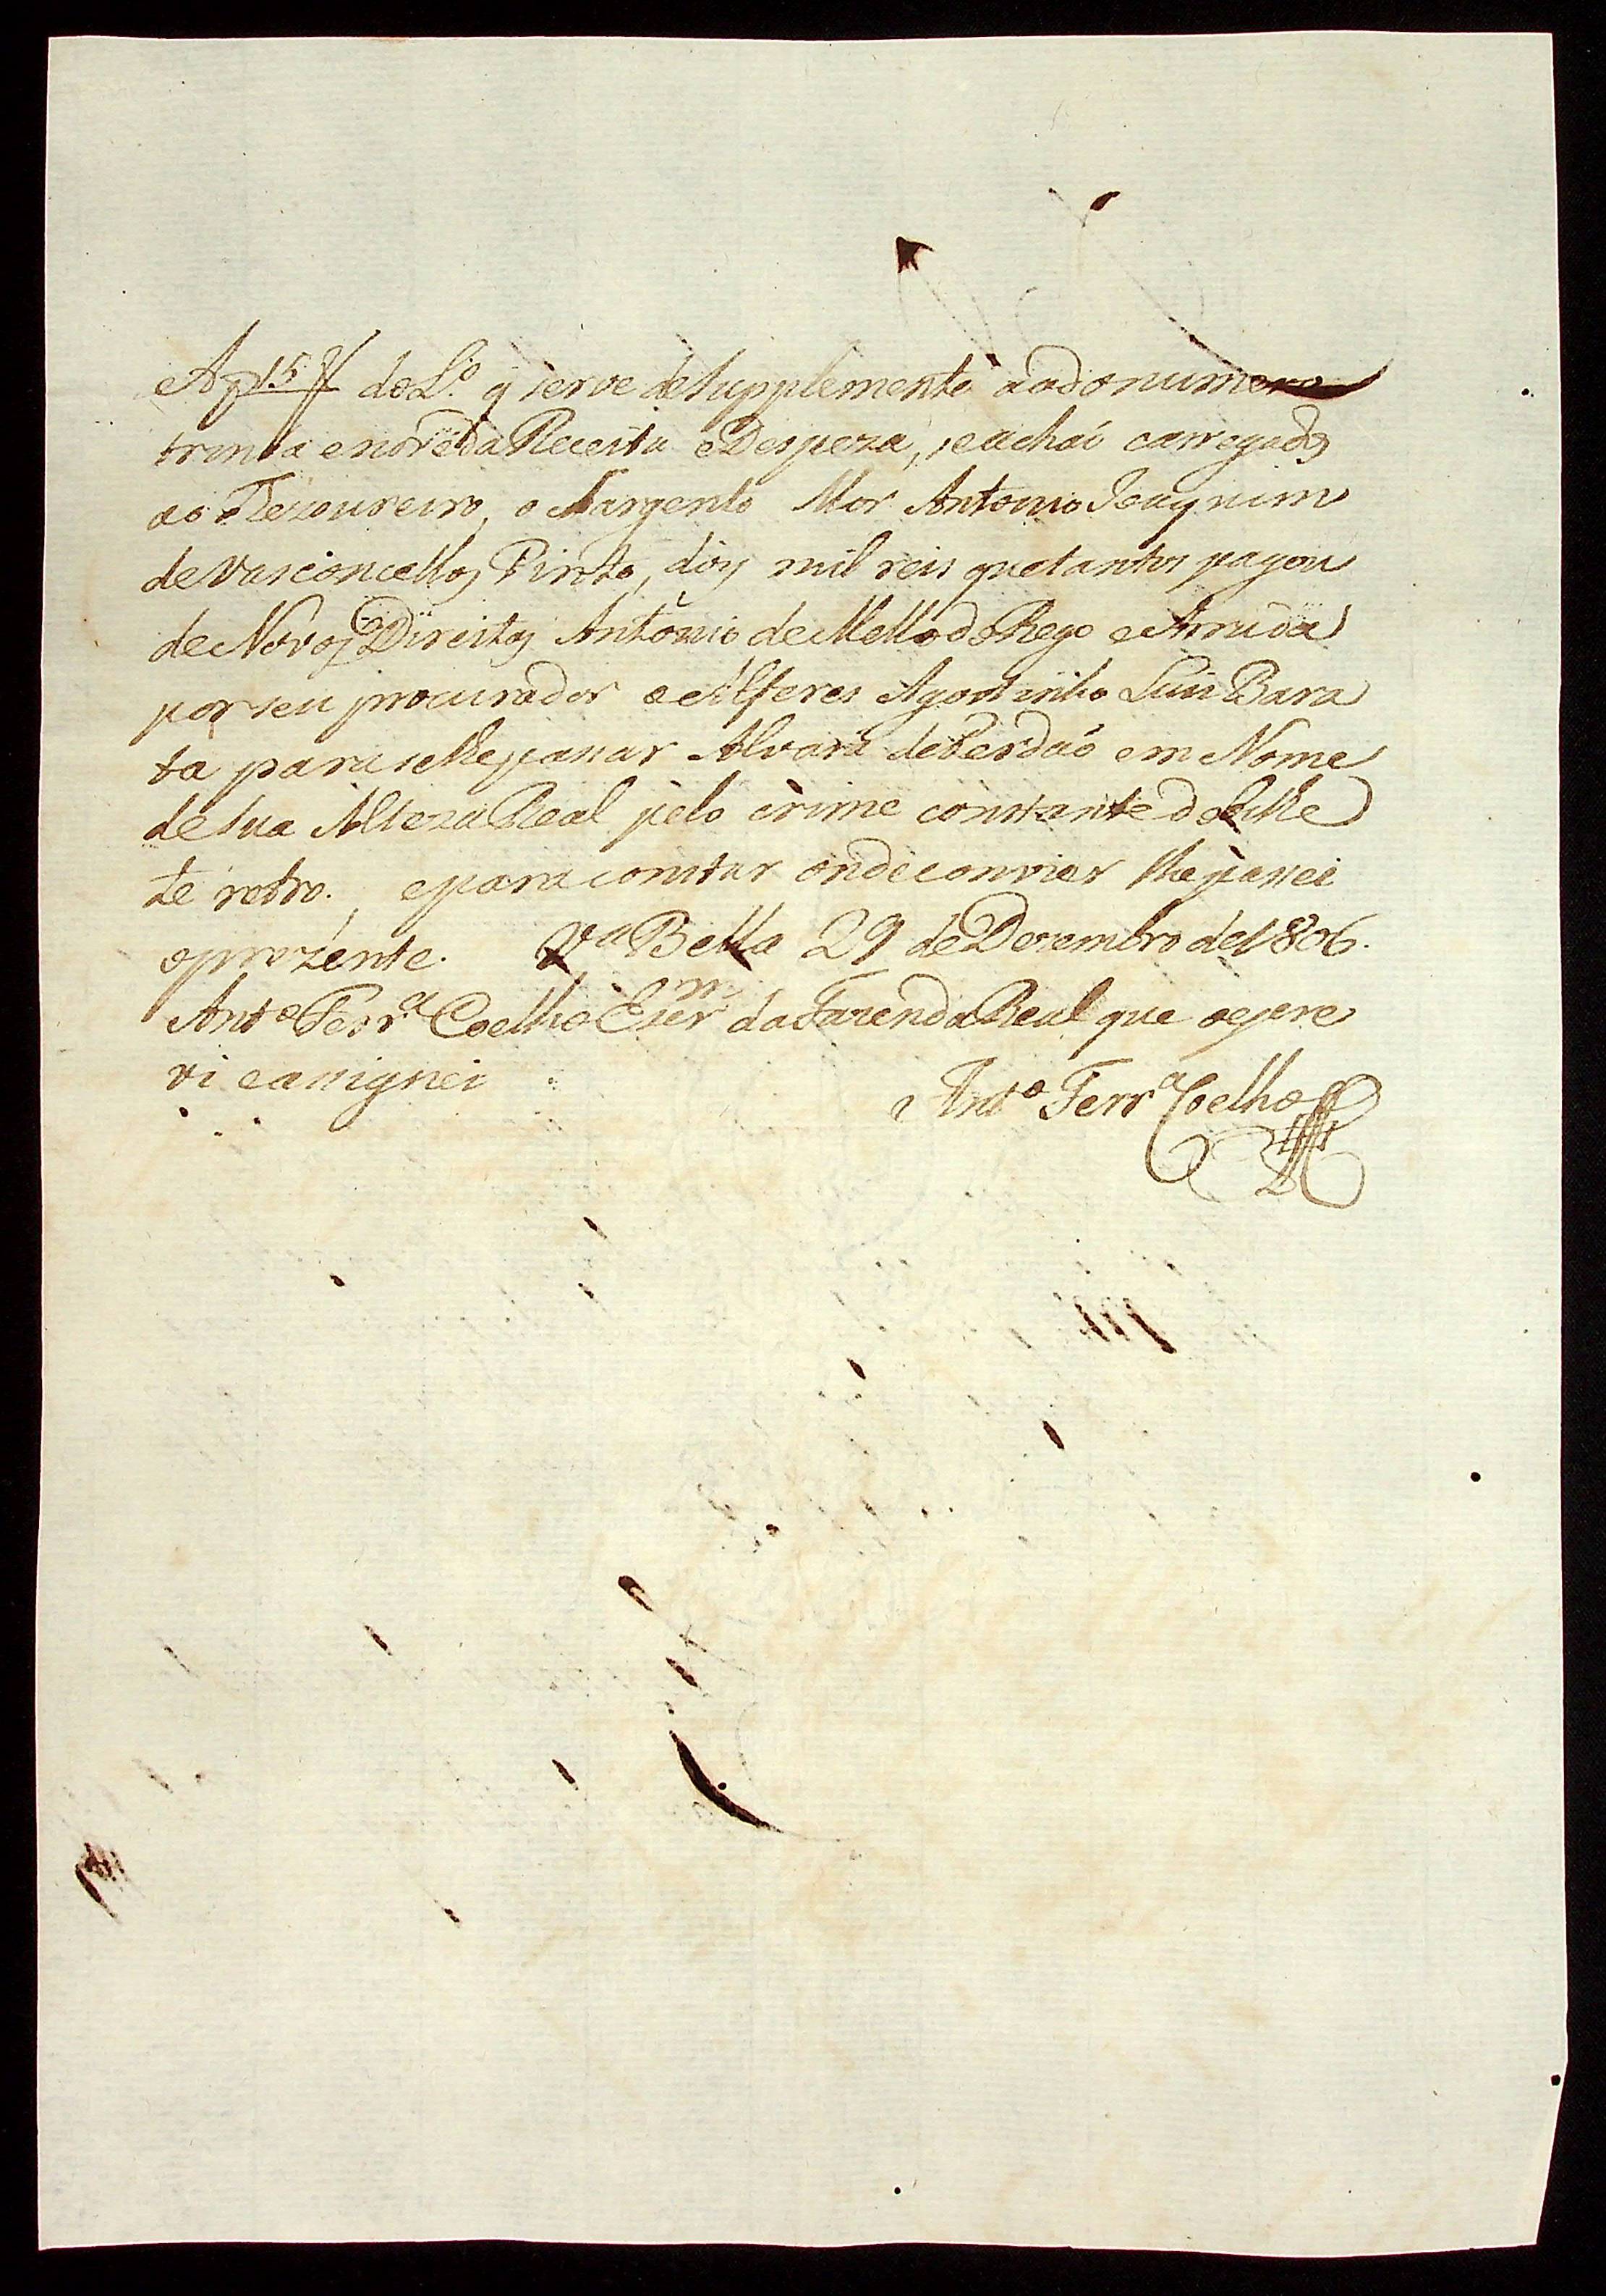 A f 15 V do L.º q serve de Supplemento aodo numero
trinta enove da Receita e Despeza, se achaó carregados
ao Tezoureiro, o Sargento Mor Antonio Joaquim
de Vasconcellos Pinto, dois mil reis que tantos pagou
de Novos Direitos Antonio de Mello do Rego e Arruda
por seu procurador o Alferes Agostinho Luis Bara
ta para selhe passar Alvará de Perdaó em Nome
de Sua Alteza Real pelo crime constante do bilhe
te retro., epara constar onde convier lhe passei
oprezente. Vª Bella 29 de Dezembro de 1806.
Antº Ferrª Coelho Escrᵐ da Fazenda Real que oescre
vi eassignei
Antº Ferrª Coelho